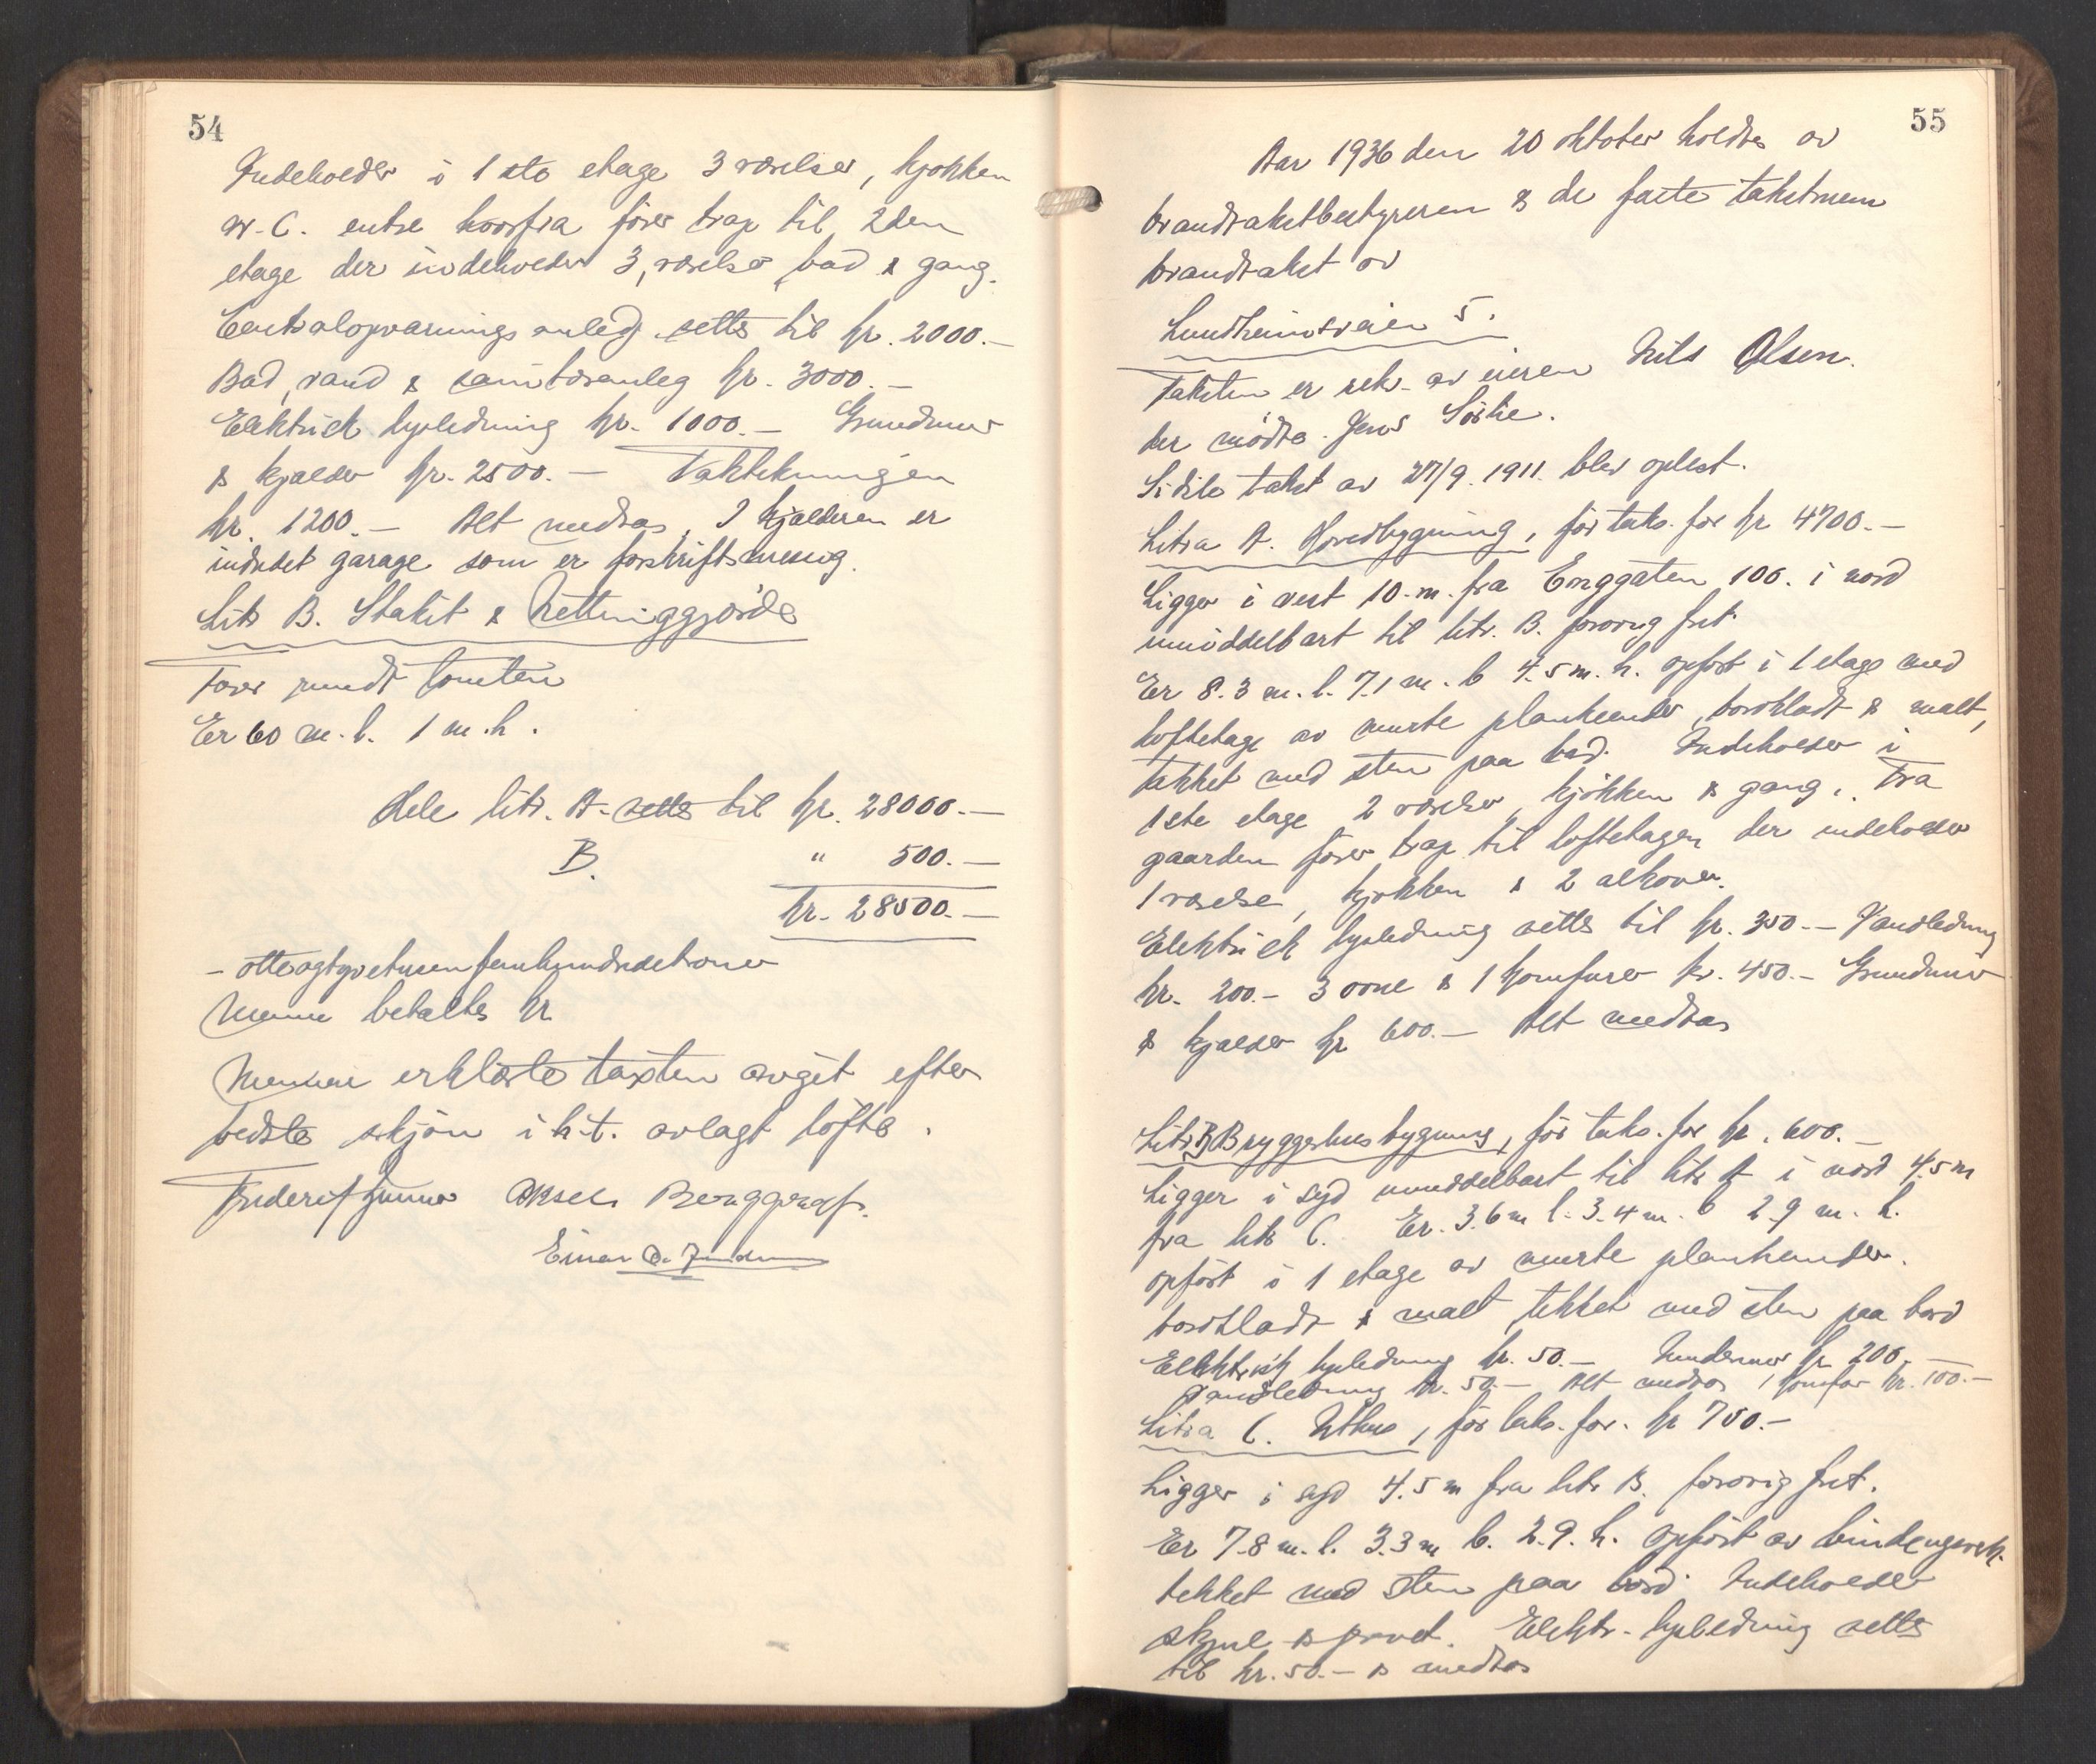 54
Indeholder i 1ste etage 3 værelser, kjøkken
w.c. entre hvorfra fører trap til 2den
etage der indeholder 3 værelser, bad & gang.
Centralopvarmings anlegg settes til kr. 2000.–
Bad, vand & sanitæranleg kr. 3000.–
Elektrisk lysledning kr. 1000.– Grundmur
& kjælder kr. 2500.– Taktekningen
kr. 1200.– Alt medtas, I kjælderen er
indredet garage som er forskriftsmessig.
Litr B. Stakit & Nettinggjærde
rundt tomten
Er 60 m. l. 1 m. h.
Hele litr. A. settes til kr. 28000.–
B. " 500.–
kr. 28500.–
– otteogtyvetusenfemhundredekroner
Mænn betaltes kr
Mænne erklærte taxten avgit efter
bedste skjøn i h.t. avlagt løfte.
Aksel Berggraf.
Einar
55
Aar 1936 den 20 oktober holdtes av
brandtakstbestyreren & de faste takstmenn
brandtakst av
Lundheimsveien 5.
Taksten er rekv. av eieren Nils Olsen.
Der mødte Jens
Sidste takst av 27/9. 1911. blev oplest.
Litra A. Hovedbygning, før taks. for kr 4700.–
Ligger i vest 10. m. fra Enggaten 106. i nord
umiddelbart til litr. B. forøvrig frit
Er 8.3 m. l. 7.1 m. b 4.5 m. h. opført i 1 etage med
loftetage av murte plankeender, bordkladt & malt,
tekket med sten paa bord. Indeholder i
1ste etage 2 værelser, kjøkken & gang. Fra
gaarden fører trap til loftetagen der indeholder
1 værelse, kjøkken & 2 alkover.
Elektrisk lysledning settes til kr. 350.– Vandledning
kr. 200.– 3 ovne & 1 komfurer kr. 450.– Grundmur
& kjælder kr 600.– Alt medtas
Litr B Bryggerhusbygning, før taks. for kr. 600.–
Ligger i syd umiddelbart til litr A i nord 4.5 m
fra litr C. Er. 3.6 m l. 3.4 m. b 2.9 m. h.
opført i 1 etage av murte plankeender.
bordkladt & malt, tekket med sten paa bord
Elektrisk lysledning kr. 50.– kr 200.–
Vandledning kr. 50.– Alt medtas 1 komfur kr. 100.–
Litra C. Uthus, før taks. for. kr 750.–
Ligger i syd 4.5 m fra litr B. forøvrig frit.
Er 7.8 m. l. 3.3 m b. 2.9. h. opført av bindingsverk.
tekket med sten paa bord. Indeholder
skjul & privet. Elektr. lysledning settes
til kr. 50.– & medtas